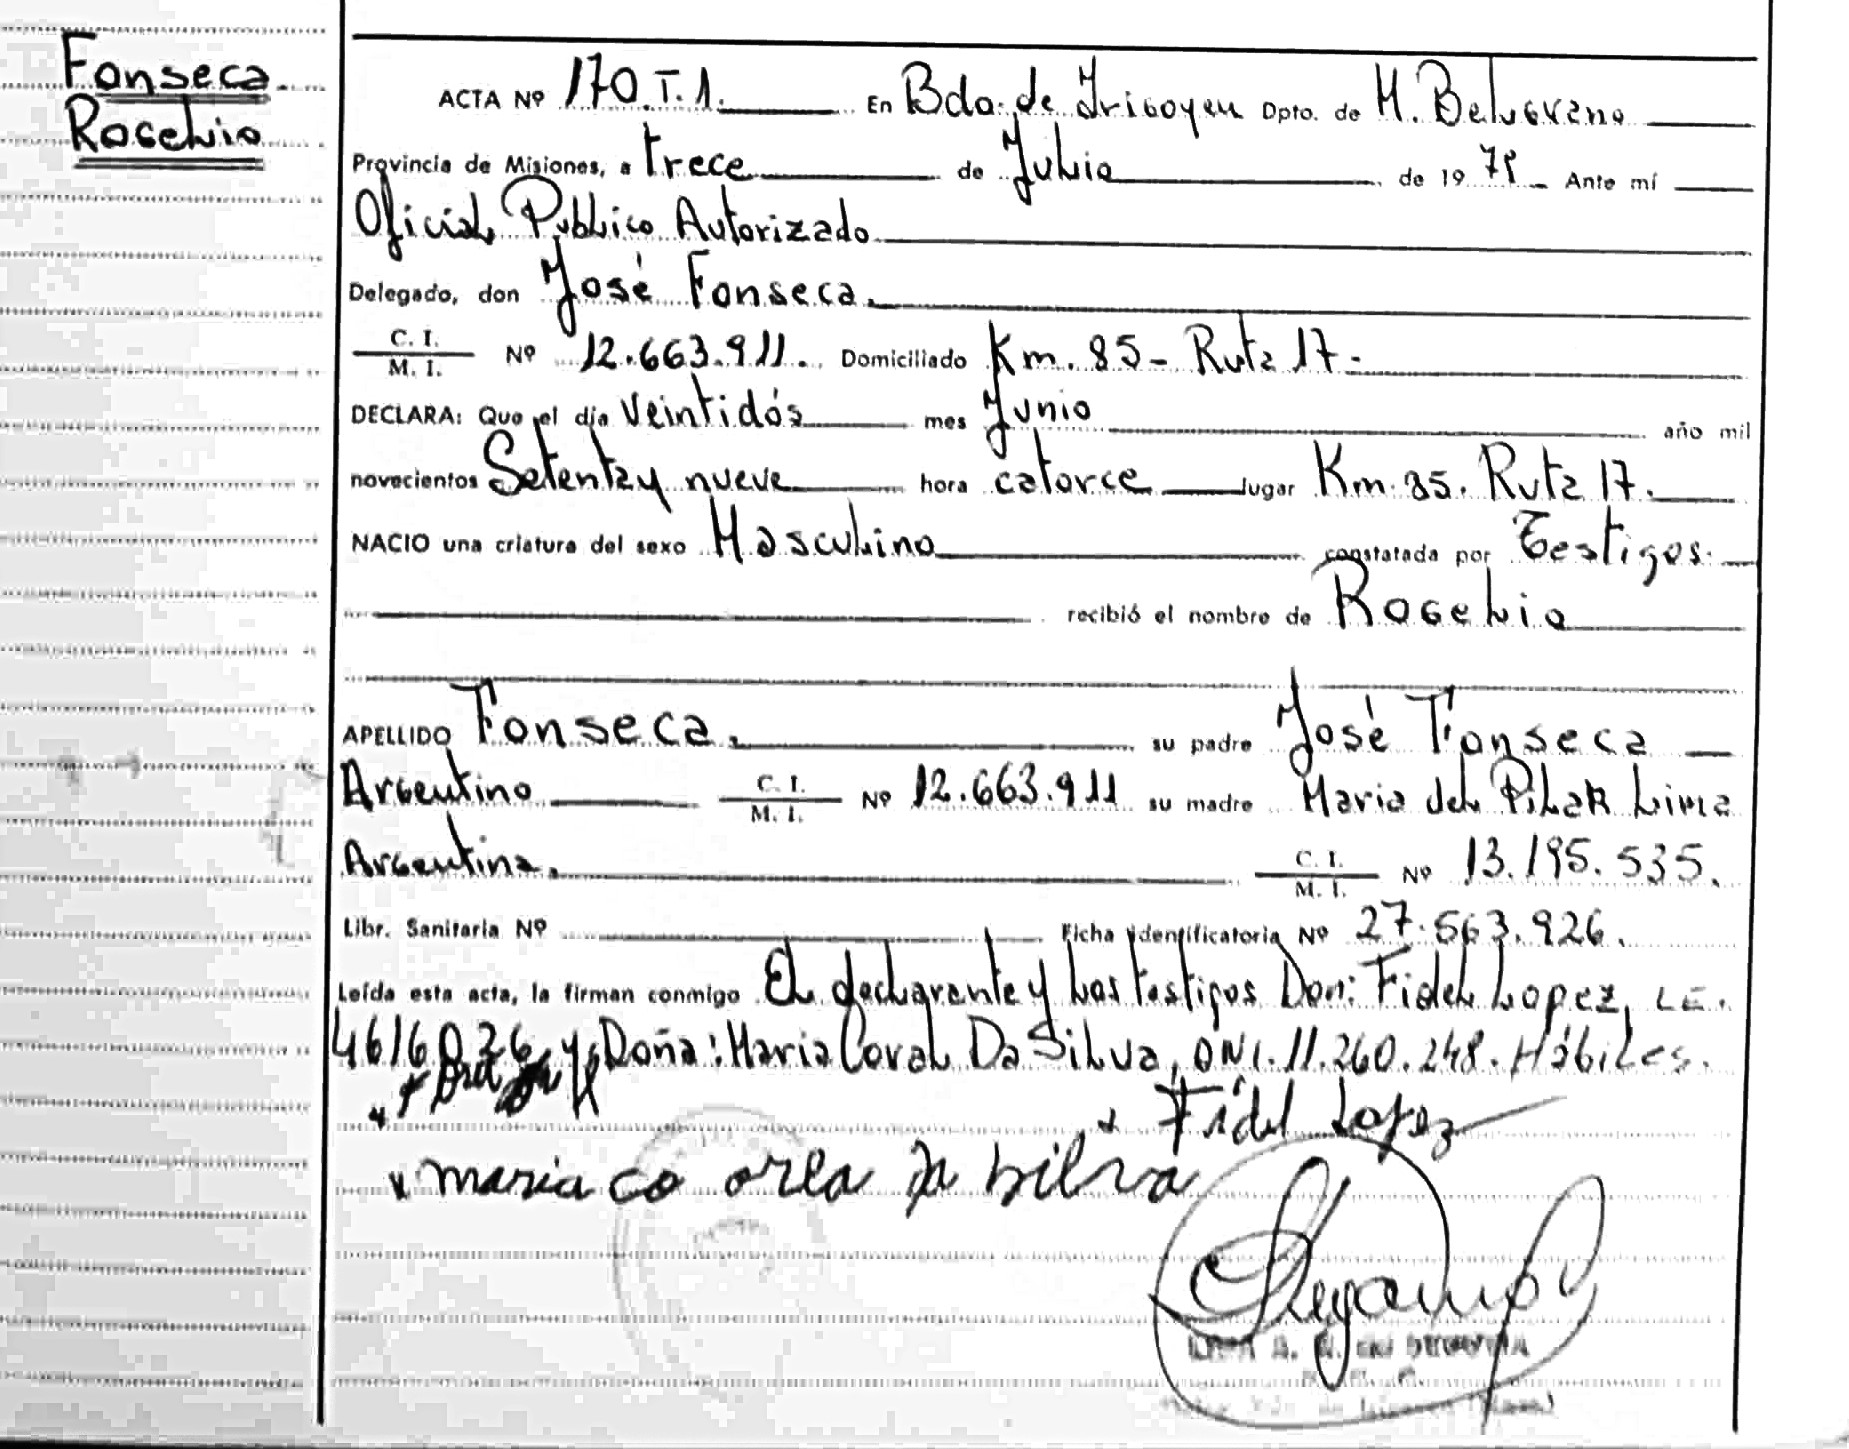 Fonseca
Rogelio
ACTA Nº 170.T.1. En Bdo. de Irigoyen Dpto. de M. Belgrano
Provincia de Misiones, a trece de Julio de 1979 Ante mí
Oficial Publico Autorizado
Delegado, don José Fonseca.
C. I.
M. I.
Nº 12.663.911. Domiciliado Km. 85 - Ruta 17.
DECLARA: Que el día Veintidós mes Junio año mil
novecientos Setenta y nueve hora catorce lugar Km. 85. Ruta 17.
NACIO una criatura del sexo Masculino constatada por Testigos.
recibió el nombre de Rogelio
APELLIDO Fonseca. su padre José Fonseca
Argentino C. I. M. I. Nº 12.663.911 su madre Maria del Pilar Lima
Argentina. C. I. M. I. Nº 13.195.535.
Libr. Sanitaria Nº Ficha identificatoria Nº 27.563.926.
Leída esta acta, la firman conmigo El declarante y los testigos Don: Fidel Lopez, L.E.
4616036 y Doña: Maria Coral Da Silva, DNI. 11.260.248. Hábiles.
Fidel Lopez
maria co orla da silva